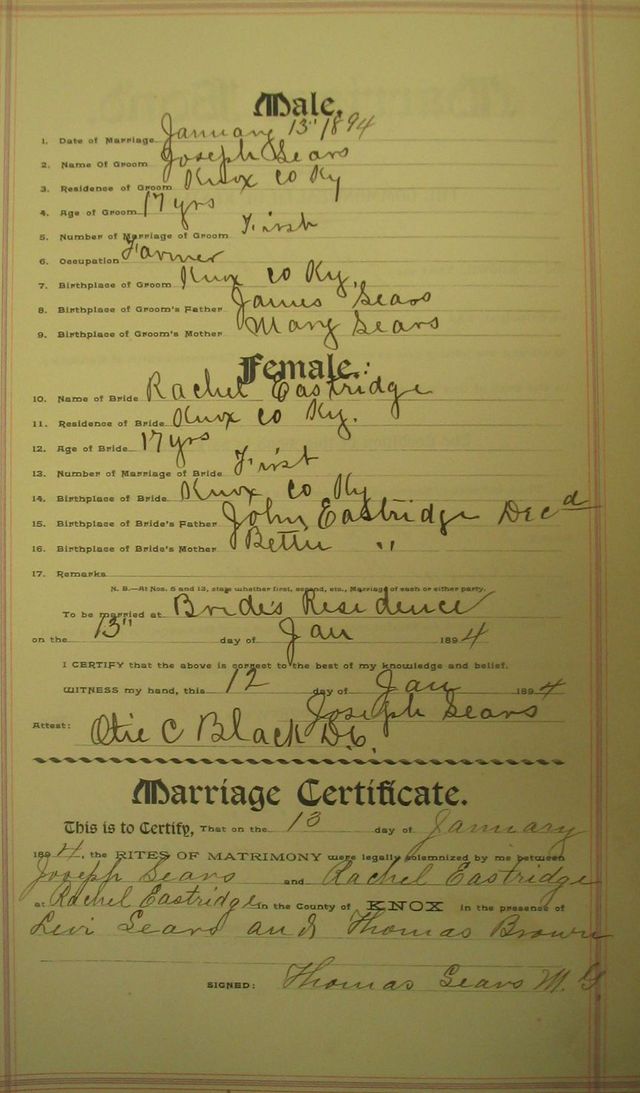 Male.
1. Date of Marriage January 13" 1894
2. Name Of Groom Joseph Sears
3. Residence of Groom Knox co Ky
4. Age of Groom 17 yrs
5. Number of Marriage of Groom First
6. Occupation Farmer
7. Birthplace of Groom Knox co Ky.
8. Birthplace of Groom's Father James Sears
9. Birthplace of Groom's Mother Mary Sears
Female.
10. Name of Bride Rachel Eastridge
11. Residence of Bride Knox co Ky.
12. Age of Bride 17 yrs
13. Number of Marriage of Bride First
14. Birthplace of Bride Knox co Ky
15. Birthplace of Bride's Father John Eastridge Decd
16. Birthplace of Bride's Mother Bettie "
17. Remarks
N. B.—At Nos. 5 and 13, state whether first, second, etc., Marriage of each or either party.
To be married at Bride's Residence
on the 13" day of Jan 1894
I CERTIFY that the above is correct to the best of my knowledge and belief.
WITNESS my hand, this 12 day of Jan 1894
Joseph Sears
Attest: Otie C Black D.C.
Marriage Certificate.
This is to Certify, That on the 13 day of January
1894, the RITES OF MATRIMONY were legally solemnized by me between
Joseph Sears and Rachel Eastridge
at Rachel Eastridge in the County of KNOX in the presence of
Levi Sears and Thomas Brown
SIGNED: Thomas Sears M.G.